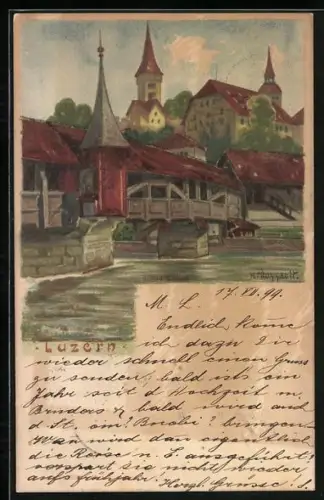 Luzern
M L. 17.XII.99.
Endlich komme
ich dazu Dir
wieder schnell einen Gruss
zu senden; bald ists ein
Jahr seit d Hochzeit m.
Bruders & bald wird auch
d St. ein bringen.
Wan wird dan
die Reise n. ausgeführt?
nicht wieder
aufs frühjahr!
Herzl. Grüsse